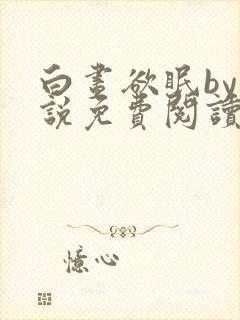 白晝欲眠by
說免費閱讀
憶心